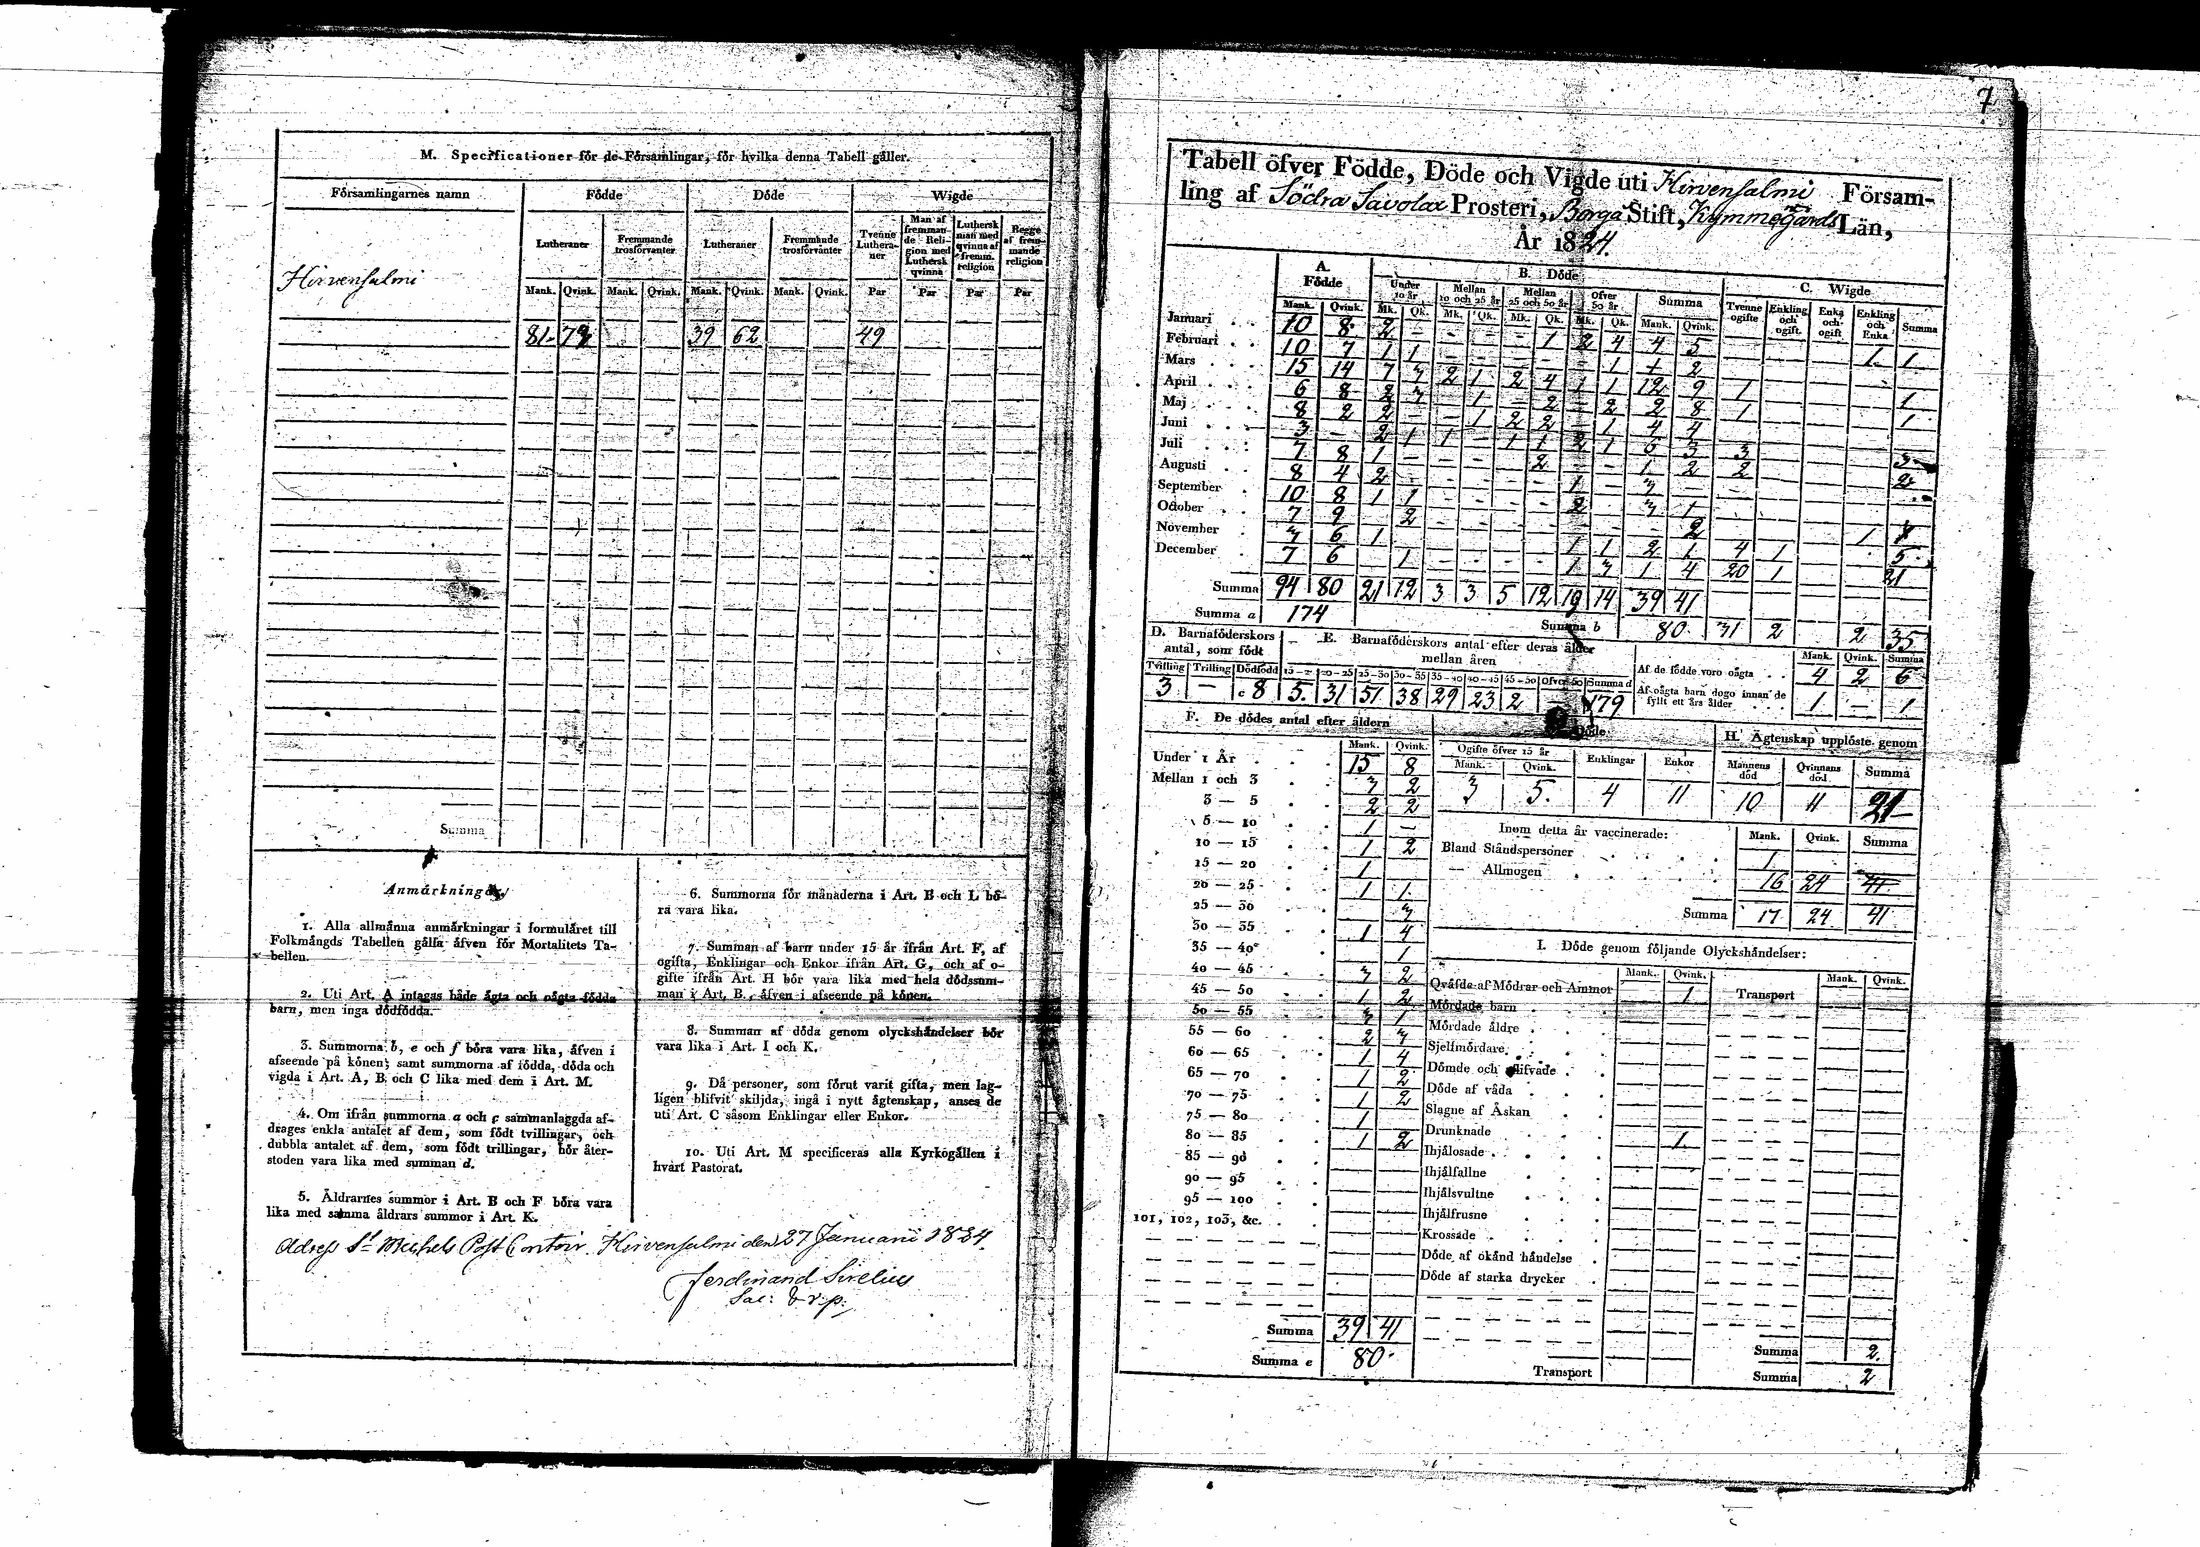 M. Specificationer för de Församlingar, för hvilka denna Tabell gäller.
Församlingarnes namn Födde Döde Wigde
Lutheraner Fremmande trosförvanter Lutheraner Fremmande trosförvanter Tvenne Lutheraner Man af fremmande Religion med Luthersk qvinna Luthersk man med qvinna af fremm. religion Begge af fremmande religion
Mank. Qvink. Mank. Qvink. Mank. Qvink. Mank. Qvink. Par Par Par Par
Hirvensalmi
81 39 62 49
Summa
Anmärkningar
1. Alla allmänna anmärkningar i formuläret till
Folkmängds Tabellen gälla äfven för Mortalitets Ta-
bellen.
2. Uti Art. A intagas både ägta och oägta födda
barn, men inga dödfödda.
3. Summorna b, e och f böra vara lika, äfven i
afseende på könen; samt summorna af födda, döda och
vigda i Art. A, B och C lika med dem i Art. M.
4. Om ifrån summorna a och c sammanlaggda af-
drages enkla antalet af dem, som födt tvillingar, och
dubbla antalet af dem, som födt trillingar, bör åter-
stoden vara lika med summan d.
5. Åldrarnes summor i Art. B och F böra vara
lika med samma åldrars summor i Art. K.
6. Summorna för månaderna i Art. B och L bö-
ra vara lika.
7. Summan af barn under 15 år ifrån Art. F, af
ogifta, Enklingar och Enkor ifrån Art. G, och af o-
gifte ifrån Art. H bör vara lika med hela dödssum-
man i Art. B, äfven i afseende på könen.
8. Summan af döda genom olyckshändelser bör
vara lika i Art. I och K.
9. Då personer, som förut varit gifta, men lag-
ligen blifvit skiljda, ingå i nytt ägtenskap, anses de
uti Art. C såsom Enklingar eller Enkor.
10. Uti Art. M specificeras alla Kyrkogällen i
hvart Pastorat.
Adress St Michels Post Contoir, Hirvensalmi den 27 Januarii
Ferdinand Sirelius
Sac: & v: p:
7
Tabell öfver Födde, Döde och Vigde uti Hirvensalmi Försam-
ling af Södra Savolax Prosteri, Borgå Stift, Kymmenegårds Län,
År 1824.
A. Födde B. Döde C. Wigde
Under 10 år Mellan 10 och 25 år Mellan 25 och 50 år Öfver 50 år Summa Tvenne ogifte Enkling och ogift Enka och ogift Enkling och Enka Summa
Mank. Qvink. Mk. Qk. Mk. Qk. Mk. Qk. Mk. Qk. Mank. Qvink.
Januari 10 8 2 - - - - 1 2 4 4 5 1 1
Februari 10 7 1 1 1 1 2
Mars 15 14 7 3 2 1 2 4 1 1 12 9 1 1
April 6 8 2 3 - 1 - 2 - 2 2 8 1 1
Maj 8 2 2 - - 1 2 2 - 1 4 4 3 3
Juni 3 - 2 1 1 - 1 1 2 1 6 3 2 2
Juli 7 8 1 2 1 2
Augusti 8 4 2 1 3
September 10 8 1 1 2 3 1
October 7 9 2 2 1
November 3 6 1 1 1 2 1 4 1 5
December 7 6 1 1 3 1 4 20 1 21
Summa 94 80 21 12 3 3 5 12 14 39 41
Summa a 174 Summa b 80 31 2 2 35
D. Barnaföderskors antal, som födt
E. Barnaföderskors antal efter deras ålder mellan åren
Tvilling Trilling Dödfödd 15 — 20 20 — 25 25 — 30 30 — 35 35 — 40 40 — 45 45 — 50 Öfver 50 Summa d
3 — 8 5 31 51 38 29 23 2 — 179
Mank. Qvink. Summa
Af de födde voro oägta 4 2 6
Af oägta barn dogo innan de fyllt ett års ålder 1 — 1
F. De dödes antal efter åldern
Mank. Qvink.
Under 1 År 15 8
Mellan 1 och 3 3 2
3 — 5 2 2
5 — 10 1 —
10 — 15 1 2
15 — 20 1
20 — 25 1 1
25 — 30 3
30 — 35 1 4
35 — 40 1
40 — 45 3 2
45 — 50 1 2
50 — 55 3 1
55 — 60 2 3
60 — 65 1 4
65 — 70 1 2
70 — 75 1 2
75 — 80 1
80 — 85 1 2
85 — 90
90 — 95
95 — 100
101, 102, 103, &c.
Summa 39 41
Summa e 80
Döde
Ogifte öfver 15 år Enklingar Enkor
Mank. Qvink.
3 5 4 11
H. Ägtenskap upplöste genom
Mannens död Qvinnans död Summa
10 11 21
Inom detta år vaccinerade: Mank. Qvink. Summa
Bland Ståndspersoner 1
— Allmogen 16 24 41
Summa 17 24 41
I. Döde genom följande Olyckshändelser:
Mank. Qvink. Mank. Qvink.
Qväfda af Mödrar och Ammor 1 Transport
Mördade barn
Mördade äldre
Sjelfmördare
Dömde och aflifvade
Döde af våda
Slagne af Åskan
Drunknade 1
Ihjälosade
Ihjälfallne
Ihjälsvultne
Ihjälfrusne
Krossade
Döde af okänd händelse
Döde af starka drycker
Summa 2
Transport Summa 2